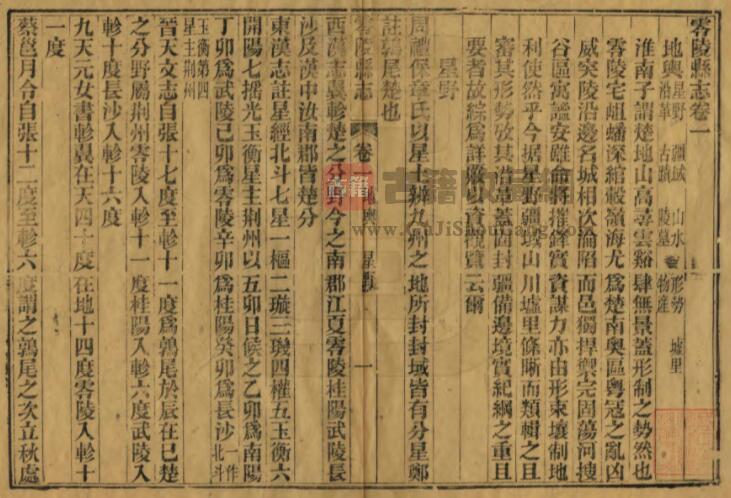 零陵縣志卷一
地輿 星野 疆域 山水 形勢 墟里
沿革 古蹟 陵墓 物産
淮南子謂楚地山高尋雲谿肆無景蓋形制之勢然也
零陵宅岨蟠深綰轂嶺海尤爲楚南奧區粵寇之亂凶
威突陵沿邊名城相次淪陷而邑獨捍禦完固蕩河搜
谷區寓謐安雖命將摧鋒實資謀力亦由形束壤制地
利使然乎今据星野疆域山川墟里條晰而類輯之且
審其形勢攷其沿革蓋固封疆備邊境實紀綱之重且
要者故綜爲詳以資觀覽云爾
星野
周禮保章氏以星土辨九州之地所封封域皆有分星鄭
註鶉尾楚也
零陵縣志 卷一 地輿 星野 一
西漢志翼軫楚之分野今之南郡江夏零陵桂陽武陵長
沙及漢中汝南郡皆楚分
東漢志註星經北斗七星一樞二璇三璣四權五玉衡六
開陽七搖光玉衡星主荆州以五卯日候之乙卯爲南陽
丁卯爲武陵己卯爲零陵辛卯爲桂陽癸卯爲長沙一作北斗
玉衡第四星主荆州
晉天文志自張十七度至軫十一度爲鶉尾於辰在巳楚
之分野屬荆州零陵入軫十一度桂陽入軫六度武陵入
軫十度長沙入軫十六度
九天元女書軫翼在天四十度在地十四度零陵入軫十
一度
蔡邕月令自張十二度至軫六度謂之鶉尾之次立秋處
www.GuJiShouCang.com